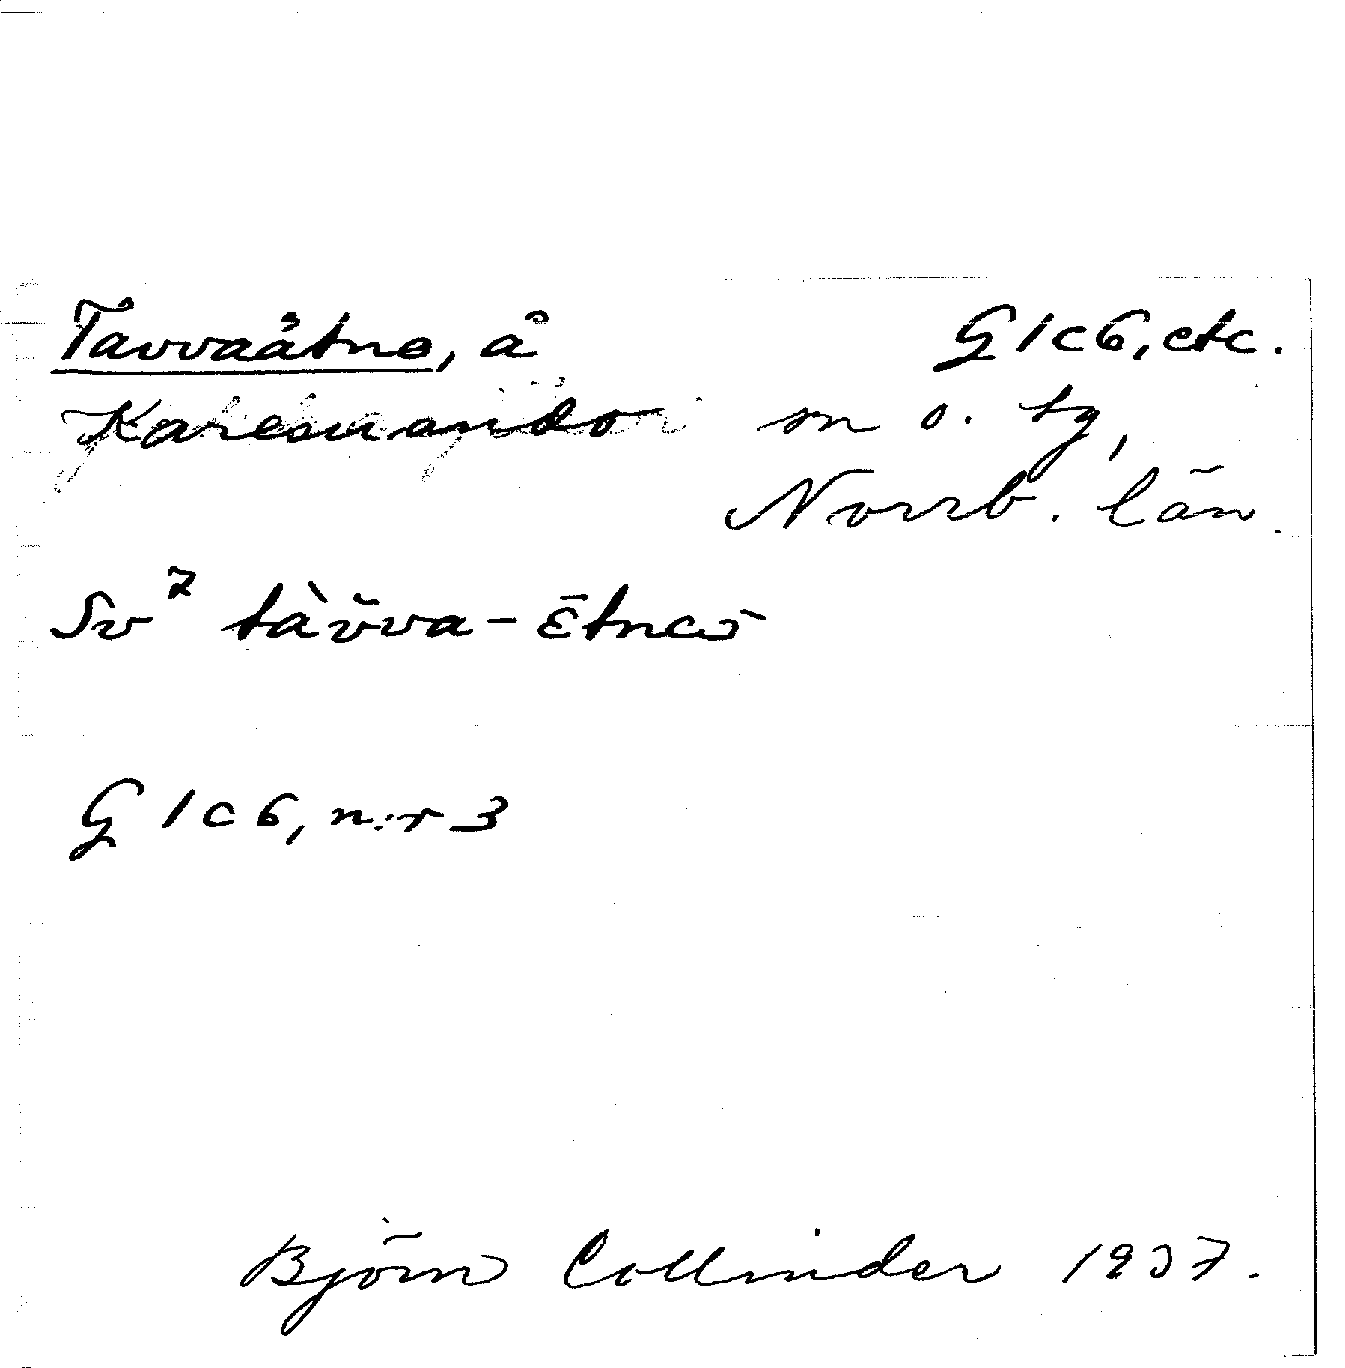 Tavvaåtno, å G 1 c 6, etc.
Karesuando m o. tg,
Norrb. län.
Sv⁷ tàv̆va-ɛ̄tnω
G 1 c 6, n:r 3
Björn Collinder 1937.